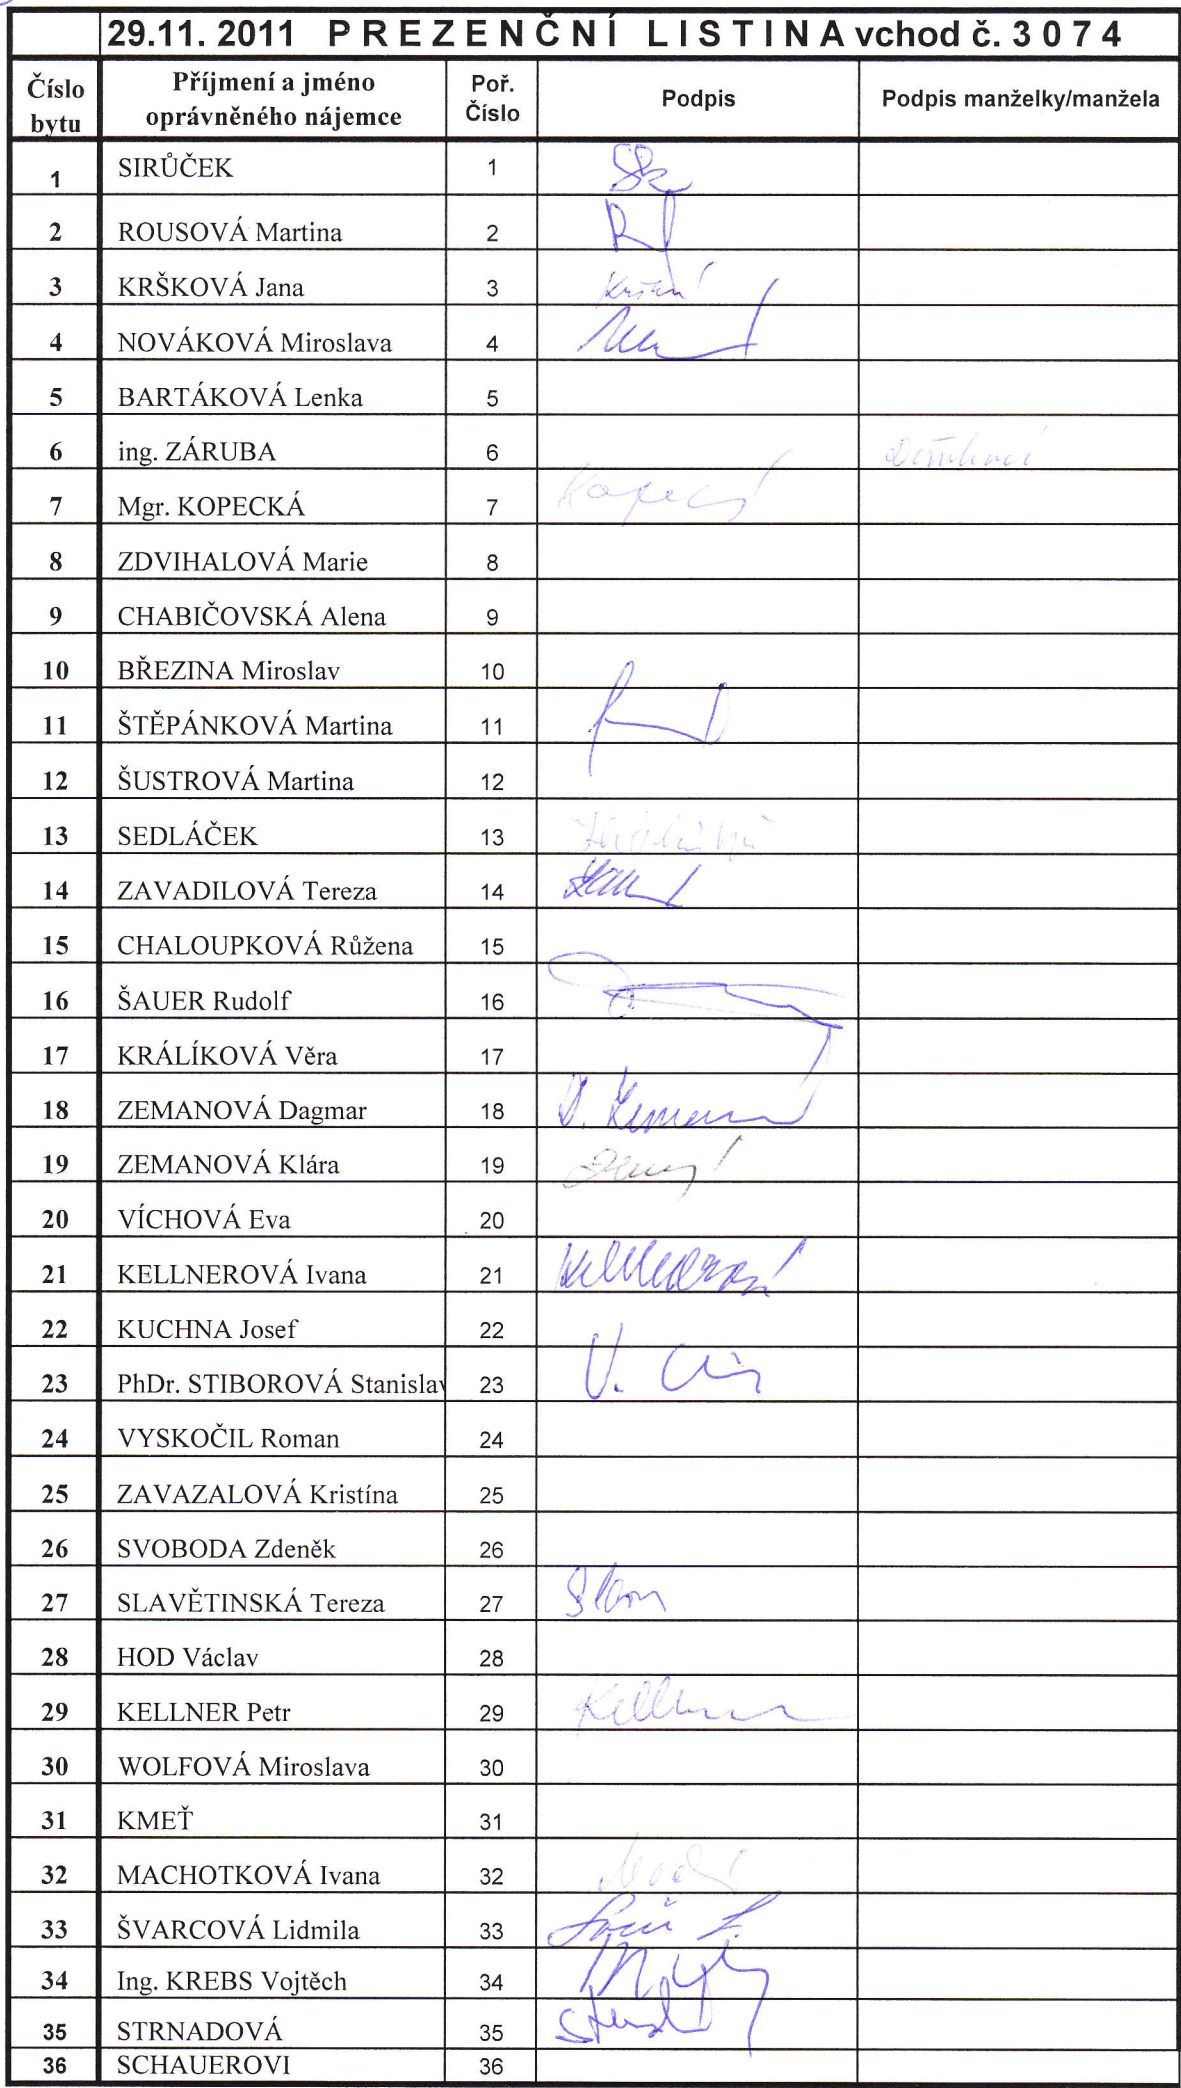 29.11. 2011 P R E Z E N Č N Í L I S T I N A vchod č. 3 0 7 4
Číslo bytu Příjmení a jméno oprávněného nájemce Poř. Číslo Podpis Podpis manželky/manžela
1 SIRŮČEK 1
2 ROUSOVÁ Martina 2
3 KRŠKOVÁ Jana 3
4 NOVÁKOVÁ Miroslava 4
5 BARTÁKOVÁ Lenka 5
6 ing. ZÁRUBA 6
7 Mgr. KOPECKÁ 7
8 ZDVIHALOVÁ Marie 8
9 CHABIČOVSKÁ Alena 9
10 BŘEZINA Miroslav 10
11 ŠTĚPÁNKOVÁ Martina 11
12 ŠUSTROVÁ Martina 12
13 SEDLÁČEK 13
14 ZAVADILOVÁ Tereza 14
15 CHALOUPKOVÁ Růžena 15
16 ŠAUER Rudolf 16
17 KRÁLÍKOVÁ Věra 17
18 ZEMANOVÁ Dagmar 18
19 ZEMANOVÁ Klára 19
20 VÍCHOVÁ Eva 20
21 KELLNEROVÁ Ivana 21
22 KUCHNA Josef 22
23 PhDr. STIBOROVÁ Stanislav 23
24 VYSKOČIL Roman 24
25 ZAVAZALOVÁ Kristína 25
26 SVOBODA Zdeněk 26
27 SLAVĚTINSKÁ Tereza 27
28 HOD Václav 28
29 KELLNER Petr 29 Kellner
30 WOLFOVÁ Miroslava 30
31 KMEŤ 31
32 MACHOTKOVÁ Ivana 32
33 ŠVARCOVÁ Lidmila 33
34 Ing. KREBS Vojtěch 34
35 STRNADOVÁ 35
36 SCHAUEROVI 36